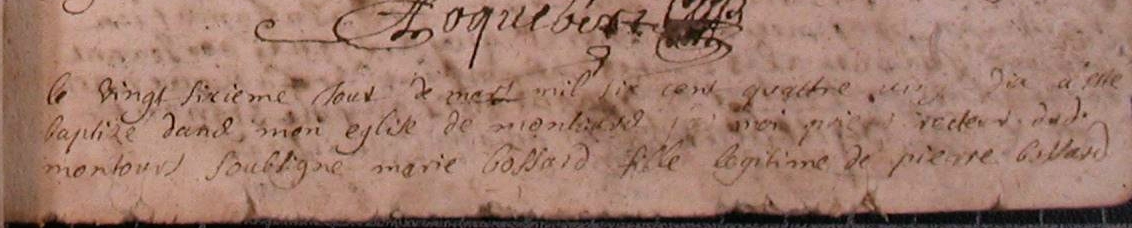 Roquebert
le vingt sixieme jour de mars mil six cens quattre ving dix a este
baptize dans mon eglise de montours moi recteur dud.
montours soubsigne marie bossard fille legitime de pierre bossard